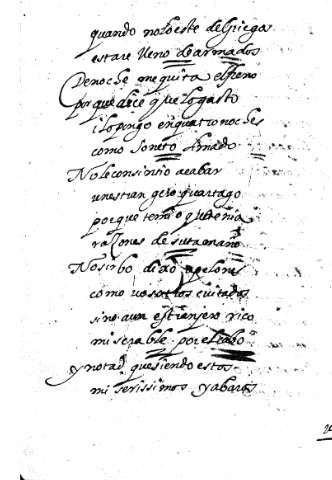 quando no lo este de Griega
estare lleno de armados
De noche me quita el freno
por que dice que lo gasto
i lo pongo en quatro noches
como soneto limado
No le consintio acabar
un estrangero quartago
porque temio que tenia
razones de su tamaño
No sirbo dixo a pelones
como vosotros cuitados
sino a un estranjero rico
miserable por el cabo
y notad que siendo estos
miserissimos y abaros